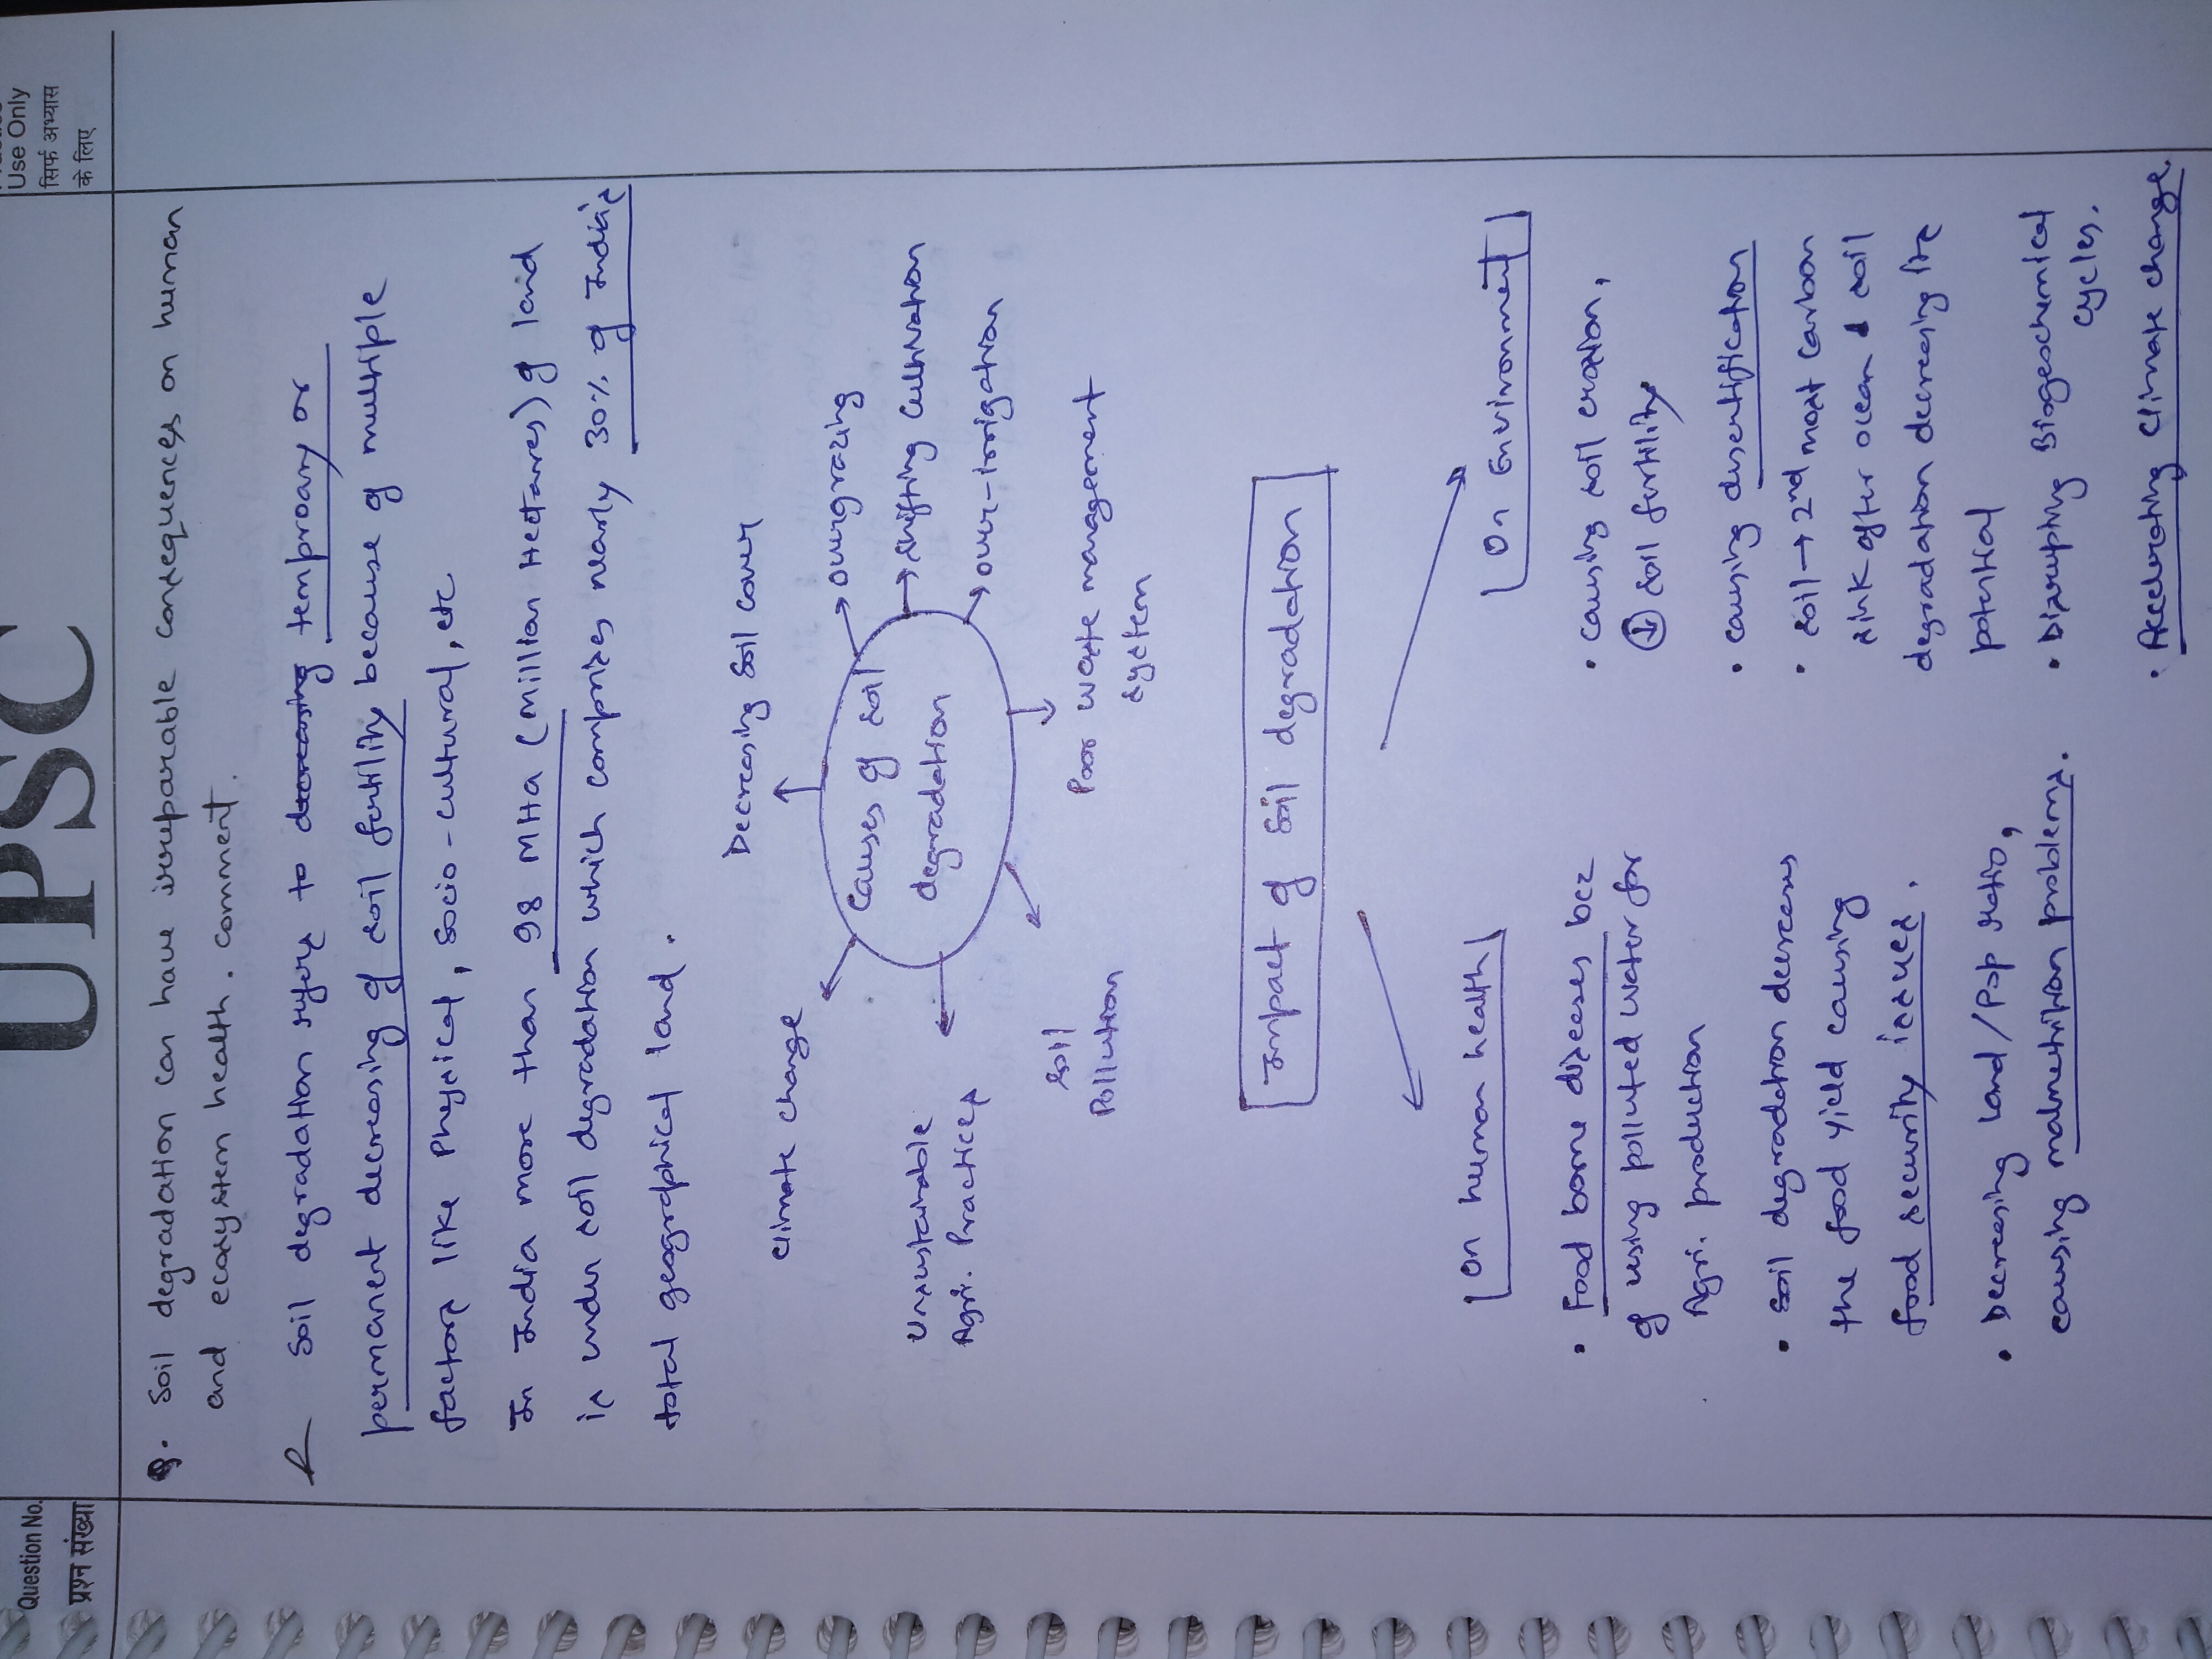 UPSC
Question No.
प्रश्न संख्या
Use Only
सिर्फ अभ्यास
के लिए
Q. Soil degradation can have irreparable consequences on human
and ecosystem health. comment.
Soil degradation refers to decreasing temproary or
permanent decreasing of soil fertility because of multiple
factors like Physical, Socio-cultural, etc
In India more than 98 MHa (million Hectares) of land
is under soil degradation which comprises nearly 30% of India's
total geographical land.
Causes of soil
degradation
Decreasing Soil cover
overgrazing
shifting cultivation
over-irrigation
Poor waste management
system
Soil
Pollution
Unsustainable
Agri. Practices
Climate change
Impact of Soil degradation
On human health
• Food borne diseases bcz
of using polluted water for
Agri. production
• Soil degradation decreases
the food yield causing
food security issues.
• Decreasing Land/Pop ratio,
causing malnutrition problems.
On Environment
• causing soil erosion,
↓ soil fertility
• causing desertification
• soil → 2nd most carbon
sink after ocean & soil
degradation decreasing its
potential
• Disrupting Biogeochemical
cycles.
• Accelerating Climate change.